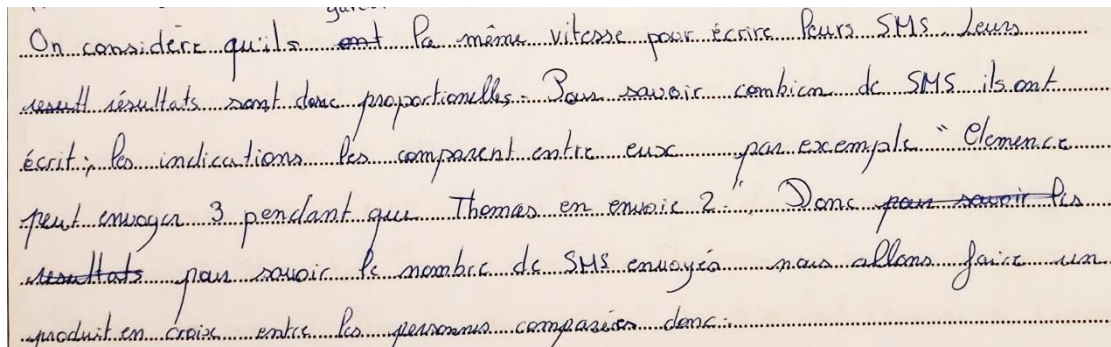 On considère qu'ils ont la même vitesse pour écrire leurs SMS. Leurs
résultats sont donc proportionelles. Pour savoir combien de SMS ils ont
écrit, les indications les comparent entre eux par exemple " Clemence
peut envoyer 3 pendant que Thomas en envoie 2 ". Donc pour savoir les
resultats pour savoir le nombre de SMS envoyés nous allons faire un
produit en croix entre les personnes comparées donc :